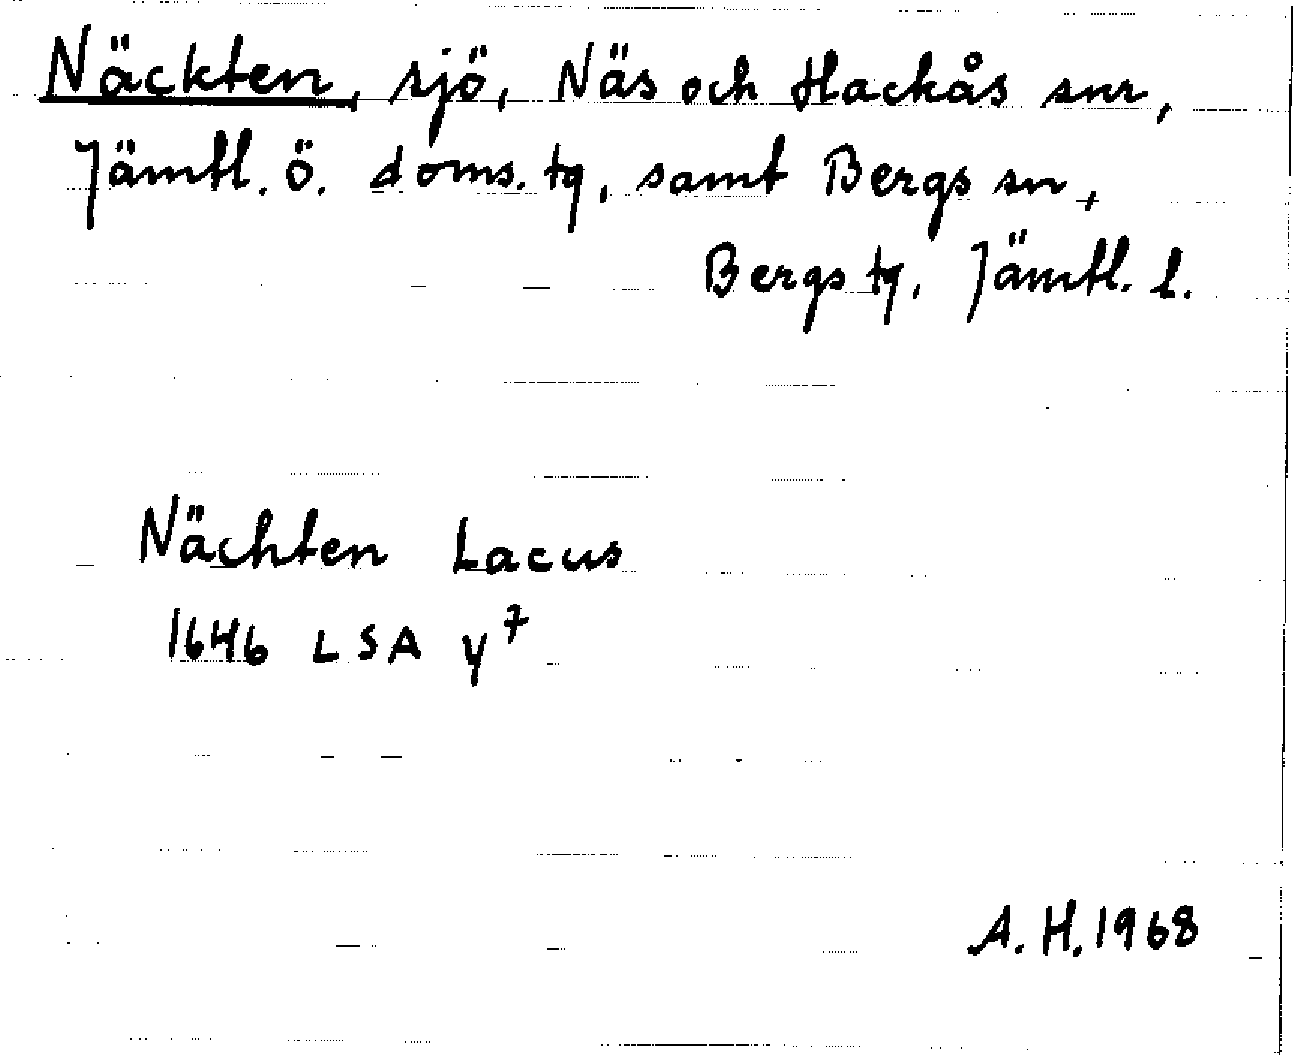 Näckten, sjö, Näs och Hackås snr,
Jämtl. ö. doms. tg, samt Bergs sn,
Bergs tg, Jämtl. l.
Nächten Lacus
1646 LSA y⁷
A. H. 1968